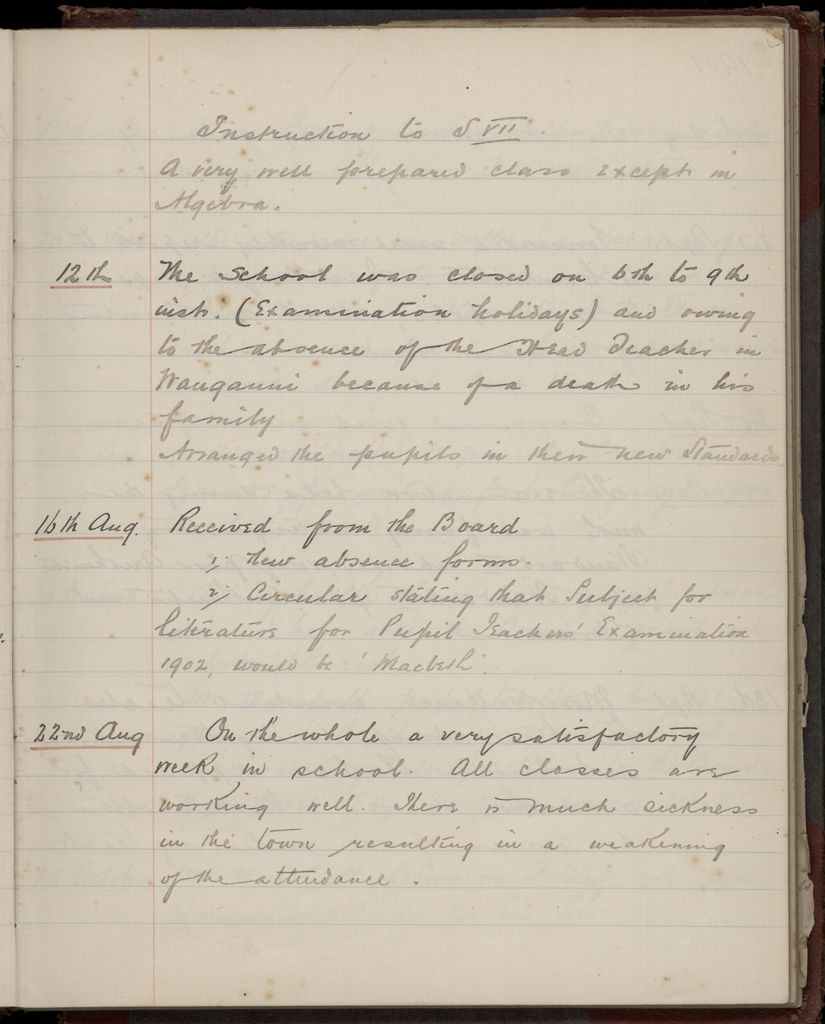 Instruction to S VII.
A very well prepared class except in
Algebra.
12th The School was closed on 6th to 9th
inst. (Examination holidays) and owing
to the absence of the Head Teacher in
Wanganui because of a death in his
family
Arranged the pupils in their new Standards
16th Aug. Received from the Board
1/ New absence forms.
2/ Circular stating that Subject for
literature for Pupil Teachers' Examination
1902, would be 'Macbeth'.
22nd Aug On the whole a very satisfactory
week in school. All classes are
working well. There is much sickness
in the town resulting in a weakening
of the attendance.